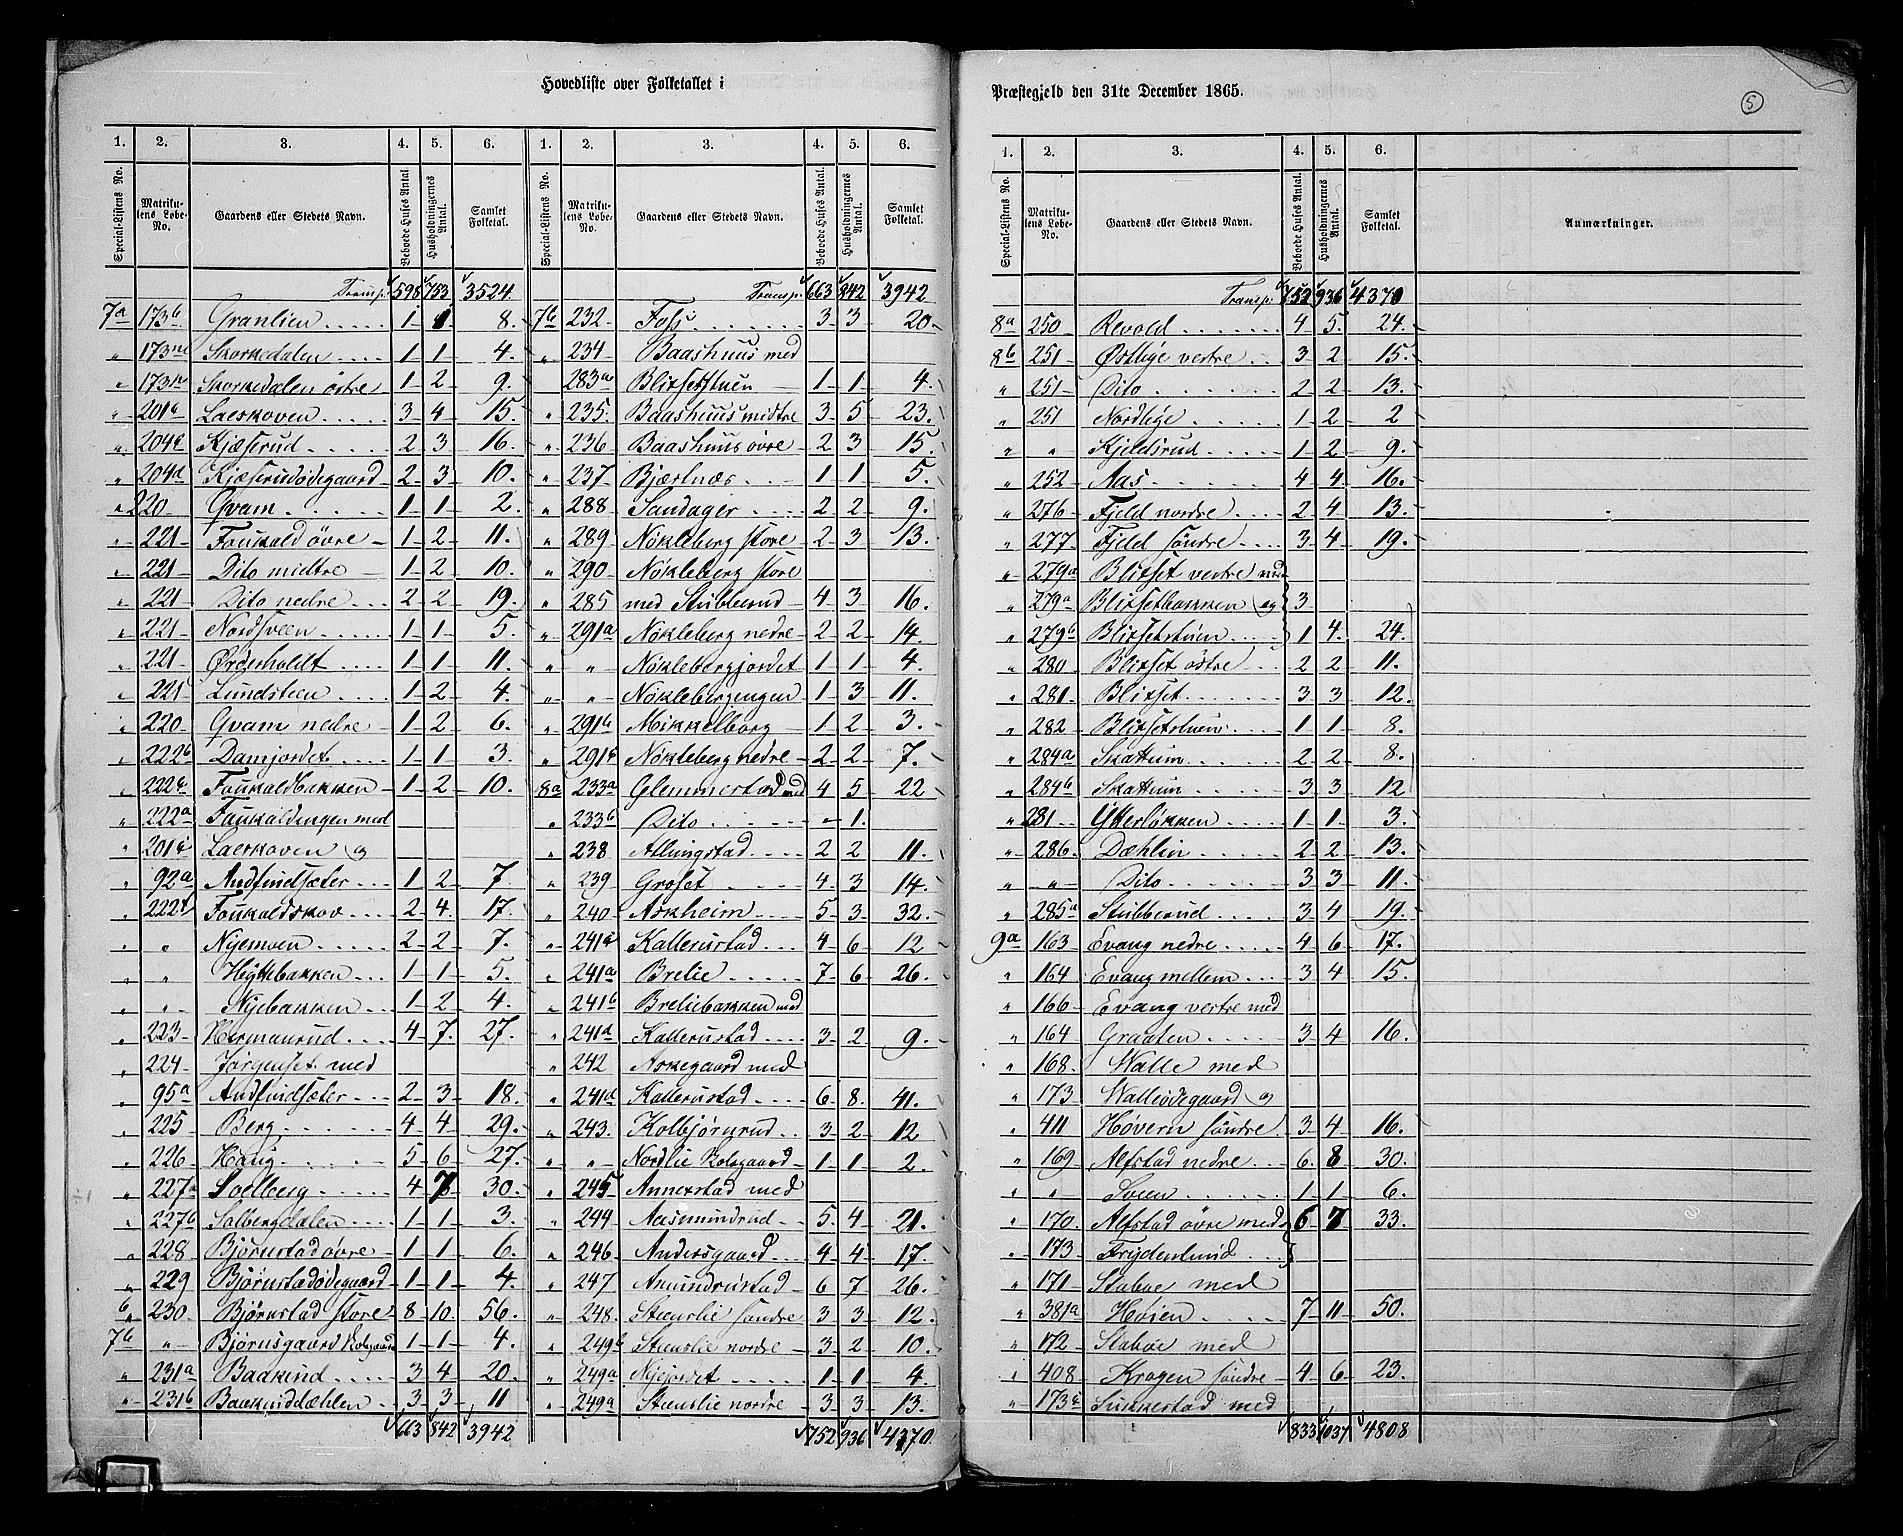 Hovedliste over Folketallet i
Præstegjeld den 31te December 1865.
5
1. 2. 3. 4. 5. 6. 1. 2. 3. 4. 5. 6.
Special-Listens No. Matrikulens Løbe-No. Gaardens eller Stedets Navn. Beboede Huses Antal. Husholdningernes Antal. Samlet Folketal. Special-Listens No. Matrikulens Løbe-No. Gaardens eller Stedets Navn. Beboede Huses Antal. Husholdningernes Antal. Samlet Folketal.
Transp. 598 753 3524
7a 173b Granlien 1 1 8.
" 173 Skorkedalen 1 1 4.
" 173 Skorkedalen östre 1 2 9.
" 201c Laeskoven 3 4 15.
" 204c Kjæserud 2 3 16.
" 204d Kjæserudödegaard 2 3 10.
" 220 Qvam 1 1 2.
" 221 Foukald övre 1 2 11.
" 221 Dito midtre 1 2 10.
" 221 Dito nedre 2 2 19.
" 221 Nordsveen 1 1 5.
" 221 Örderholdt 1 1 11.
" 221 Lundsteen 1 2 4.
" 220 Qvam nedre 1 2 6.
" 222b Damjordet 1 1 3.
" 222c Foukaldbakken 1 2 10.
" 222a Foukaldengen med
" 201 Laeskoven og
" 92a Andfindsæter 1 2 7.
" 222 Foukaldskov 2 4 17.
" " Nyemoen 2 2 7.
" " Hyttebakken 1 1 5.
" " Nyebakken 1 2 4.
" 223 Hermanrud 4 7 27.
" 224 Jörgenset med
" 95a Andfindsæter 2 3 18.
" 225 Berg 4 4 29.
" 226 Haug 5 6 27.
" 227a Soelberg 4 7 30.
" 227b Solbergdalen 1 1 3.
" 228 Björnstad övre 1 1 6.
" 229 Björnstadödegaard 1 1 4.
" 230 Björnstad store 8 10 56.
7b " Björnsgaard Kolsgaard 1 1 4.
" 231a Baakind 3 4 20.
" 231b Baakinddæhlen 3 3 11
663 842 3942
Transp. 663 842 3942
7b 232 Foss 3 3 20
" 234 Baashuus med
283a Blixetstuen 1 1 4.
" 235 Baashuus midtre 3 5 23.
" 236 Baashuus övre 2 3 15.
" 237 Bjærtnæs 1 1 5.
" 288 Sandager 2 2 9.
" 289 Nökleberg store 2 3 13.
" 290 Nökleberg store
" 285 med Stubberud 4 3 16.
" 291a Nökleberg nedre 2 2 14.
" " Nöklebergjordet 1 1 4.
" " Nöklebergengen 1 3 11.
" 291b Mikkelborg 1 2 3.
" 291c Nökleberg nedre 2 2 7.
8a 233a Glemmestad med 4 5 22
" 233b Dito " 1.
" 238 Allungstad 2 2 11.
" 239 Groset 4 3 14.
" 240 Askheim 5 3 32.
" 241c Kallerustad 4 6 12
" 241a Brelie 7 6 26.
" 241b Breliebakken med
" 241d Kallerustad 3 2 9.
" 242 Askegaard med
" 241d Kallerustad 6 8 41.
" 243 Kolbjörnrud 3 2 12
" " Nordlie Kolsgaard 1 1 2.
" 245 Annexstad med
" 244 Aasmundrud 5 4 21.
" 246 Andersgaard 4 4 17.
" 247 Amundrustad 6 7 26.
" 248 Steenslie söndre 3 3 12.
" 249b Steenslie nordre 3 2 10.
" 249a Nyejordet 1 1 4.
" 249a Steenslie nordre 3 3 13.
752 936 4370
1. 2. 3. 4. 5. 6.
Special-Listens No. Matrikulens Løbe-No. Gaardens eller Stedets Navn. Beboede Huses Antal. Husholdningernes Antal. Samlet Folketal. Anmærkninger.
Transp. 752 936 4370
8a 250 Revold 4 5 24.
8b 251 Östlige vestre 3 2 15.
" 251 Dito 2 2 13.
" 251 Nordlige 1 2 2
" " Kjeldsrud 1 2 9.
" 252 Aas 4 4 16.
" 276 Fjeld nordre 2 4 13.
" 277 Fjeld söndre 3 4 19.
" 279a Blixet vestre med
" 279a Blixetbakken og 3
" 279b Blixetstuen 1 4 24.
" 280 Blixet östre 2 2 11.
" 281 Blixet 3 3 12.
" 282 Blixetstuen 1 1 8.
" 284a Skattum 2 2 8.
" 284b Skattum 3 3 12
" 281 Ytterlökken 1 1 3.
" 286 Dæhlin 2 2 13.
" " Dito 3 3 11.
" 285a Stubberud 3 4 19.
9a 163 Evang nedre 4 6 17.
" 164 Evang mellem 3 4 15.
" 166 Evang vestre med
" 164 Graaten 3 4 16.
" 168 Walle med
" 173 Walleödegaard og
" 411 Hövern söndre 3 4 16.
" 169 Alfstad nedre 6 8 30.
" " Sveen 1 1 6.
" 170 Alfstad övre med 6 7 33.
" 173 Frydenlund
" 171 Stabæ med
" 381a Höien 7 11 50.
" 172 Stabæ med
" 408 Krogen söndre 4 6 23.
" 173c Sukkestad med
833 1037 4808